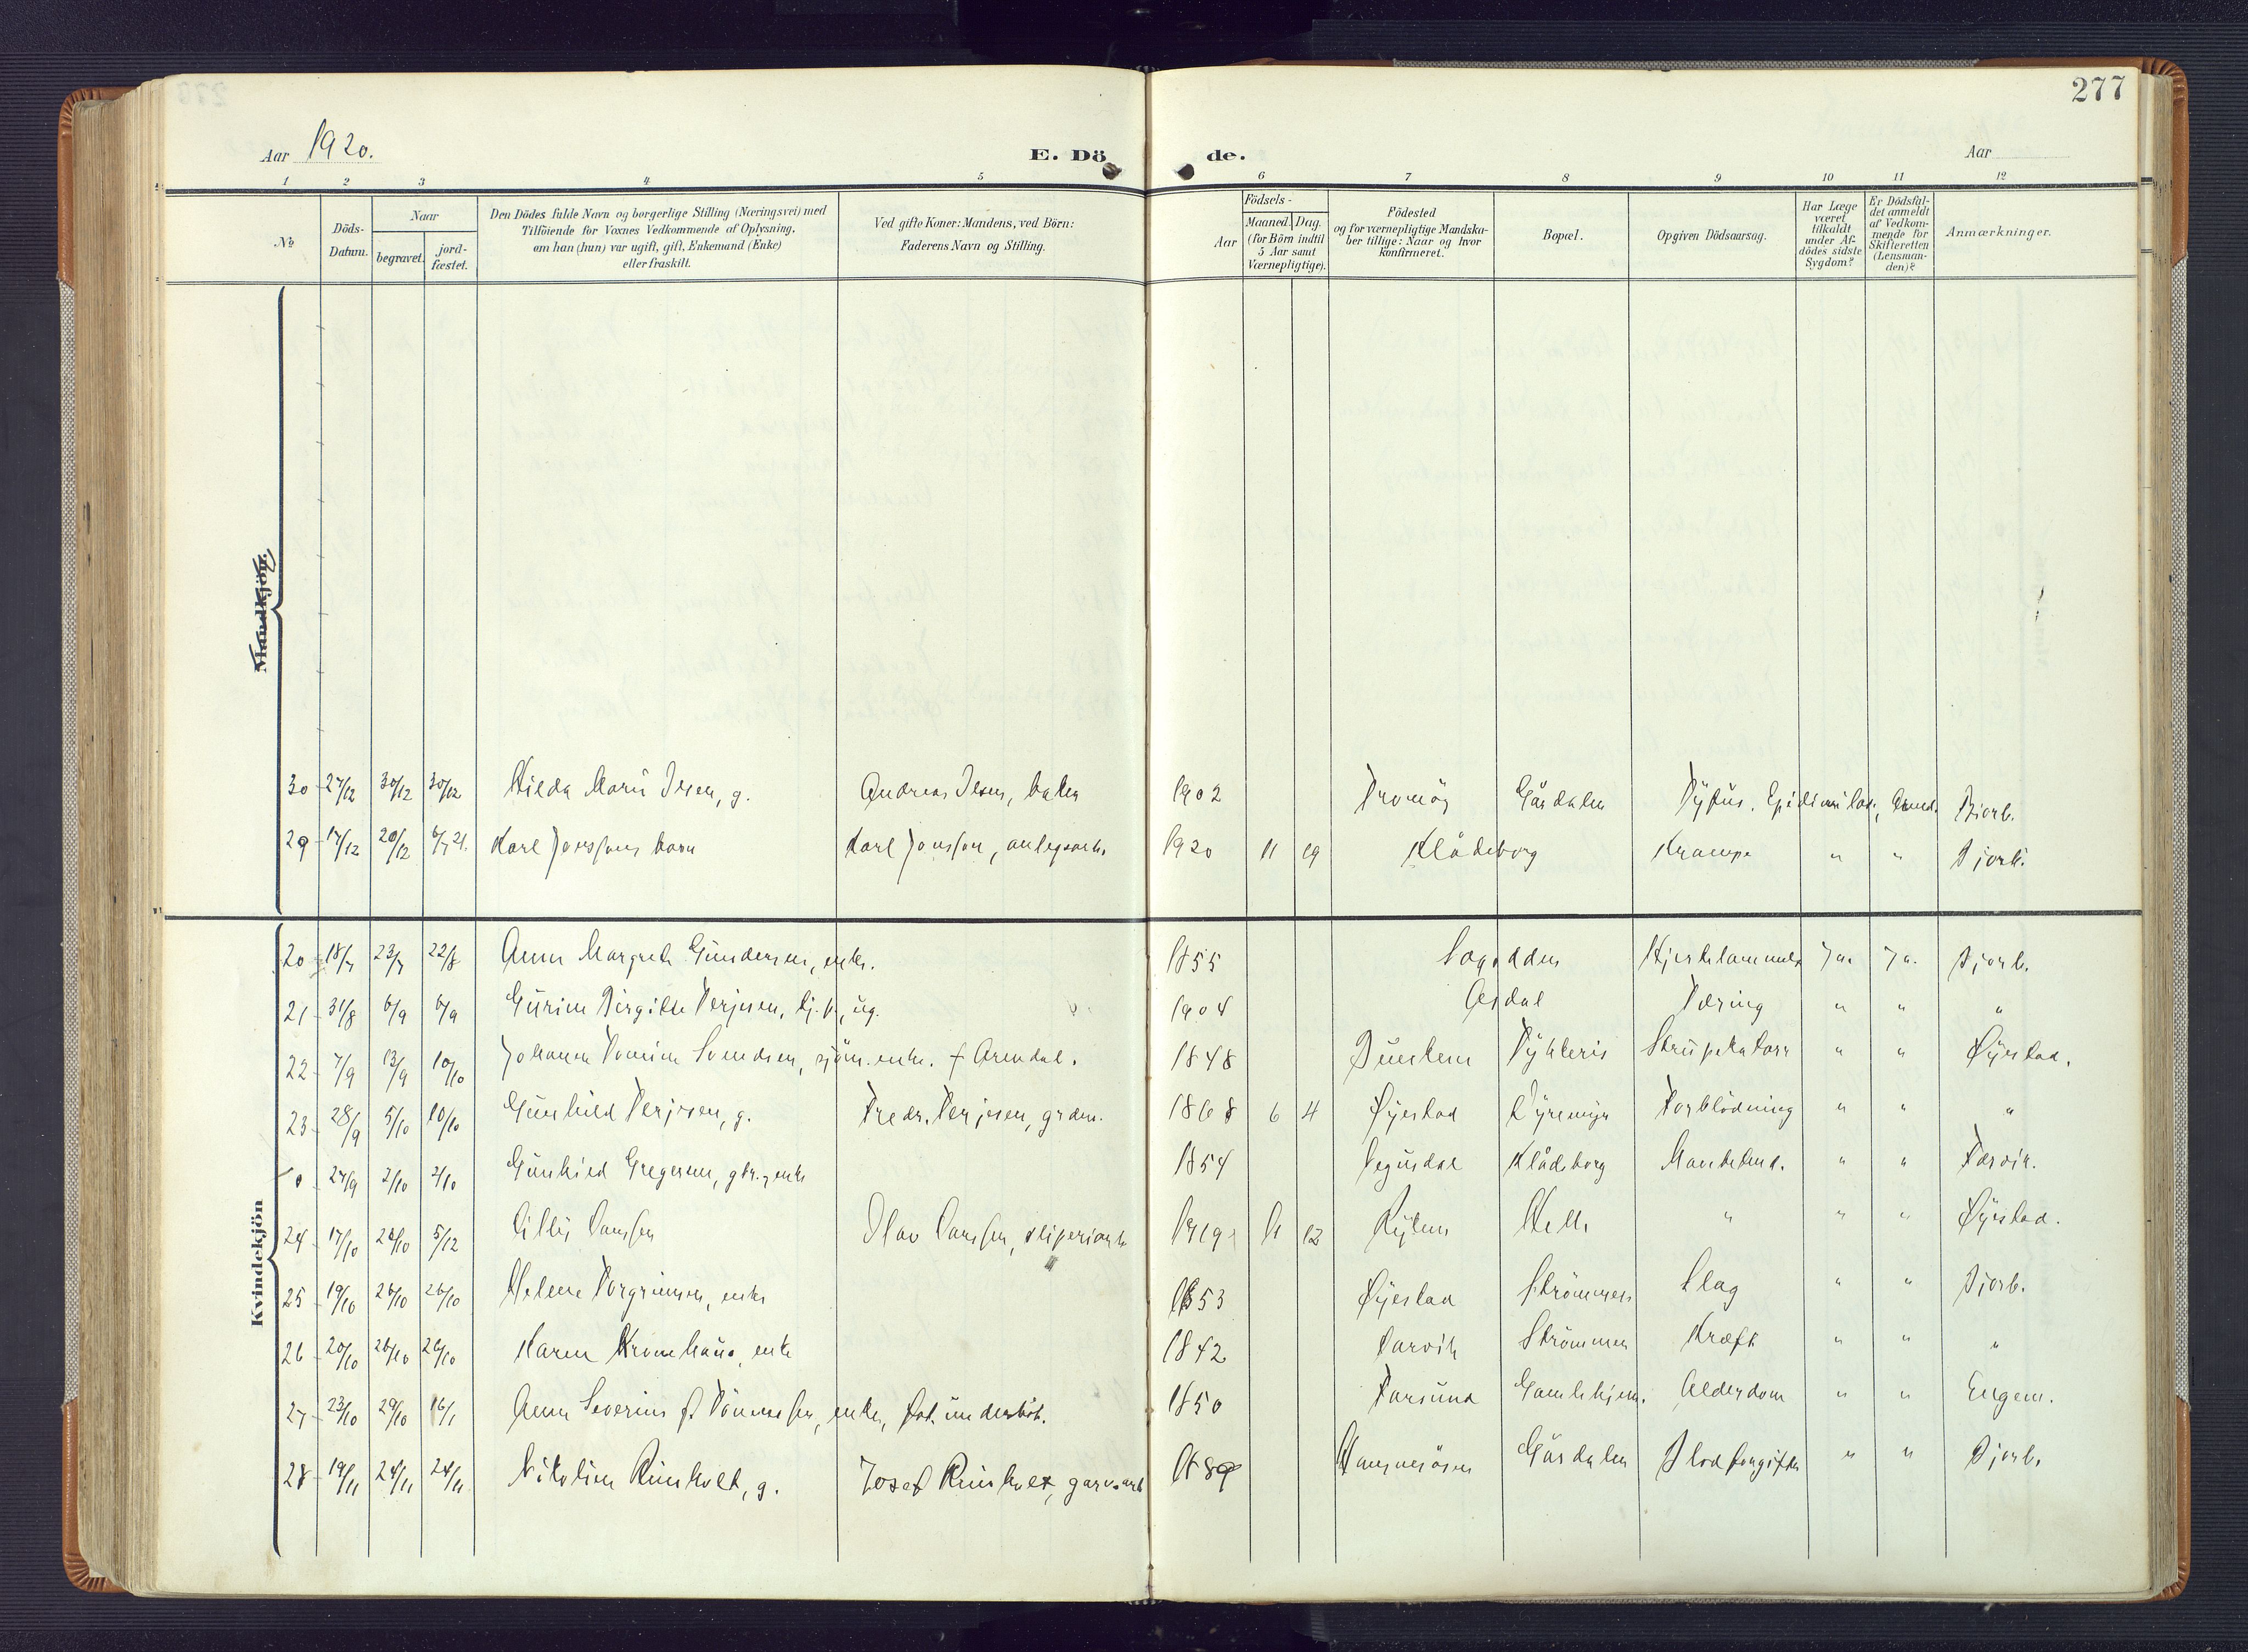 277
Aar 1920.
E. Dö de.
Aar
1 2 3 4 5 6 7 8 9 10 11 12
№
Döds-Datum.
Naar
begravet.
jordfæstet.
Den Dödes fulde Navn og borgerlige Stilling (Næringsvei) med
Tilföiende for Voxnes Vedkommende af Oplysning,
om han (hun) var ugift, gift, Enkemand (Enke)
eller fraskilt.
Ved gifte Koner: Mandens, ved Börn:
Faderens Navn og Stilling.
Aar
Födsels-
Maaned. Dag.
(for Börn indtil
5 Aar samt
Værnepligtige).
Födested
og for værnepligtige Mandskaber tillige: Naar og hvor
konfirmeret.
Bopæl.
Opgiven Dödsaarsag.
Har Læge
været
tilkaldt
under Afdödes sidste
Sygdom?
Er Dödsfaldet anmeldt
af Vedkommende for
Skifteretten
(Lensmanden)?
Anmærkninger.
Mandkjön.
30 27/12 30/12 30/12 Hilda Marie Jesen, g. Andreas Jesen, 1902 Tromöy Gårdalen Tyfus. Arend. Bjorb.
29 17/12 20/12 Karl Jonssons barn Karl Jonsson, 1920 11 19 Klådeborg Krampe " " Bjorb.
Kvindekjön
20 18/7 23/7 22/8 Anna Margrete Gundersen, enke. 1855 Hjertelammelse Ja. Ja. Bjorb.
21 31/8 6/9 6/9 Gurine Birgitte Terjesen, tj.p., ug. 1904 Asdal Tæring " " "
22 7/9 13/9 10/10 Johanne Svendsen, sjöm. enke. † Arendal. 1848 Strupekatarr " " Öyestad.
23 28/9 5/10 10/10 Gunhild Terjesen, g. Fredr. Terjesen, grdm. 1868 6 4 Öyestad Dyremyr Forblödning " " "
0 27/9 2/10 2/10 Gunhild Gregersen, enke 1854 Vegusdal Klådeborg " " Færvik.
24 17/10 24/10 5/12 Olav 1919 11 12 Helle " " " Öyestad.
25 19/10 26/10 26/10 Helene Torgrimsen, enke 1853 Öyestad Strömmen Slag " " Bjorb.
26 20/10 26/10 26/10 Karen enke 1842 Strömmen Kræft " " "
27 23/10 29/10 16/1 Anna Severine Tönnessen, enke, fat. understöt. 1850 Farsund Gamlehjem. Alderdom " " Engem.
28 19/11 24/11 24/11 Nikoline Rinholt, g. Josef Rinholt, garv.arb 1889 Gårdalen Blodforgiftn " " Bjorb.